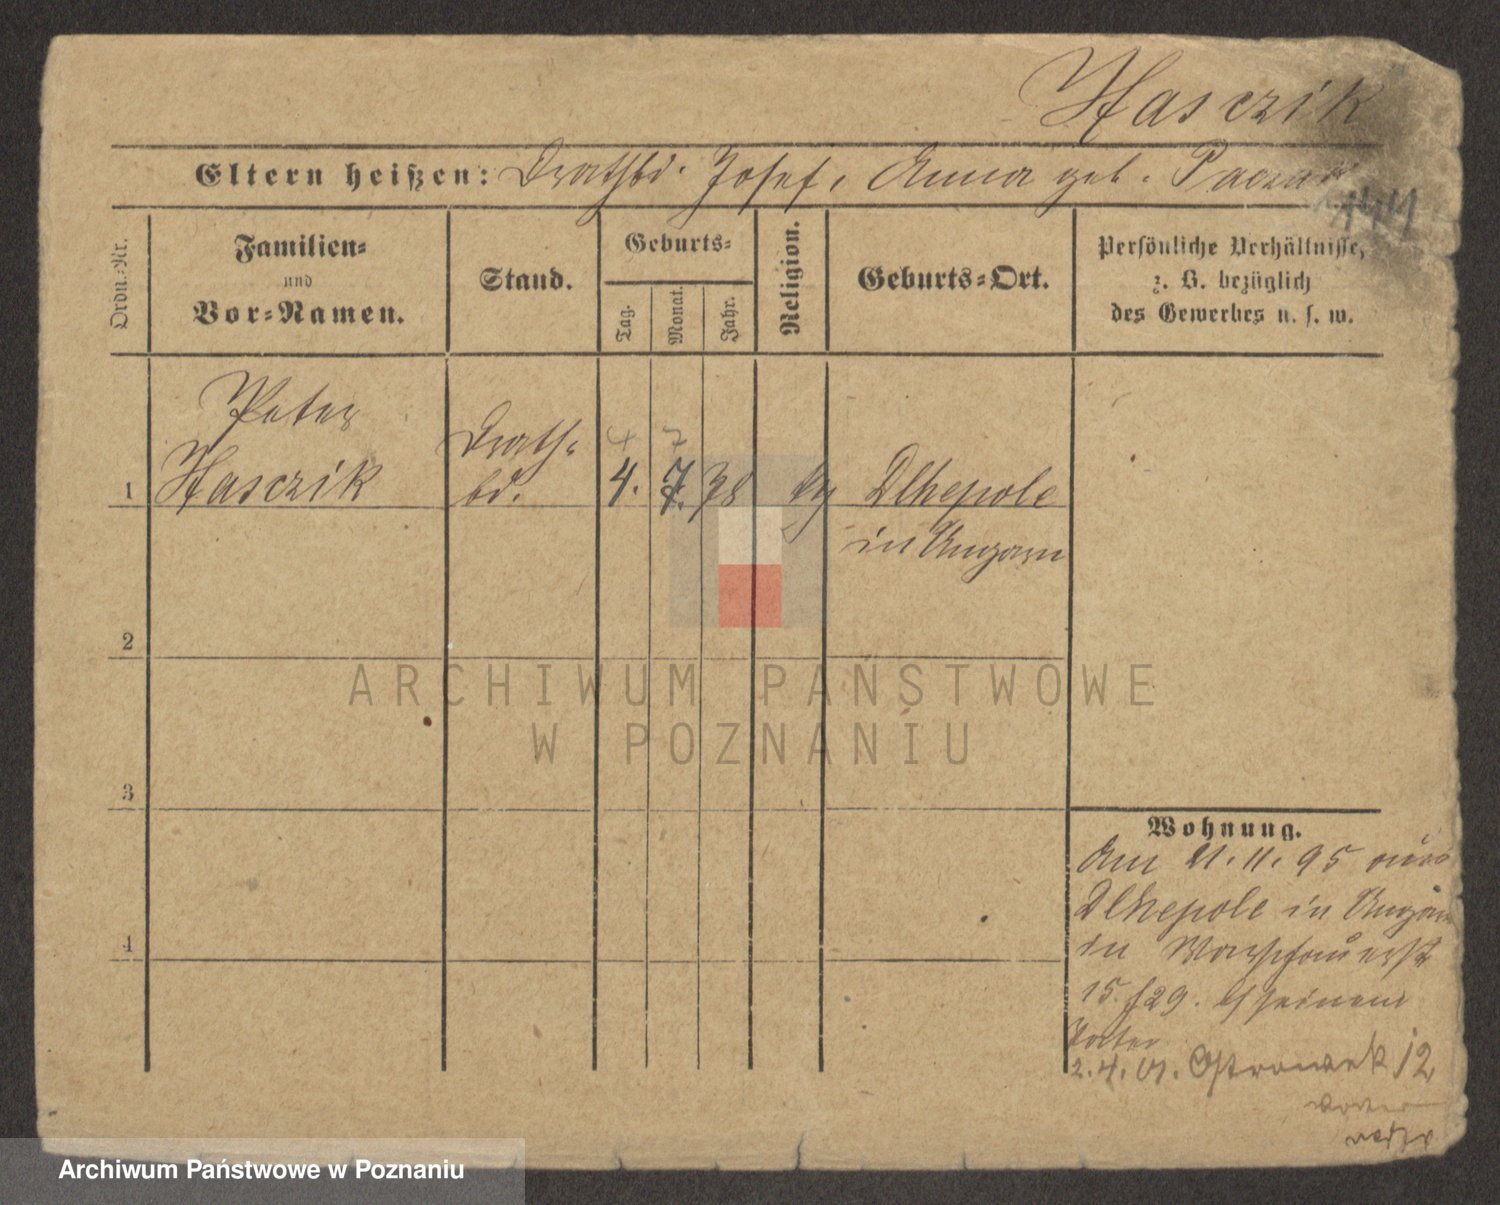 Hasczik
Eltern heißen: Drathbd. Josef, Anna geb. Paczak
Ordn.-Nr.
Familien-
und
Vor-Namen.
Stand.
Geburts-
Tag.
Monat.
Jahr.
Religion.
Geburts-Ort.
Persönliche Verhältnisse,
z. B. bezüglich
des Gewerbes u. s. w.
Peter
Hasczik
Drath-
bd.
4 7
1 4. 7. 78 Dlhepole
in Ungarn
2
3
4
Wohnung.
Am 21.11.95 aus
Dlhepole in Ungarn
in
15. f 29. seinem
Vater
2.4.01. Ostrowek 12
ARCHIWUM PAŃSTWOWE
W POZNANIU
Archiwum Państwowe w Poznaniu